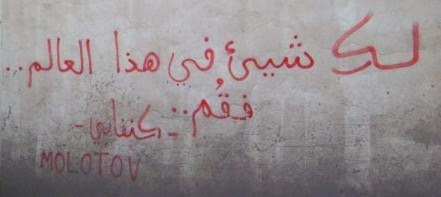 لك شيئ في هذا العالم..
فقُم..
-كنفاني-
MOLOTOV